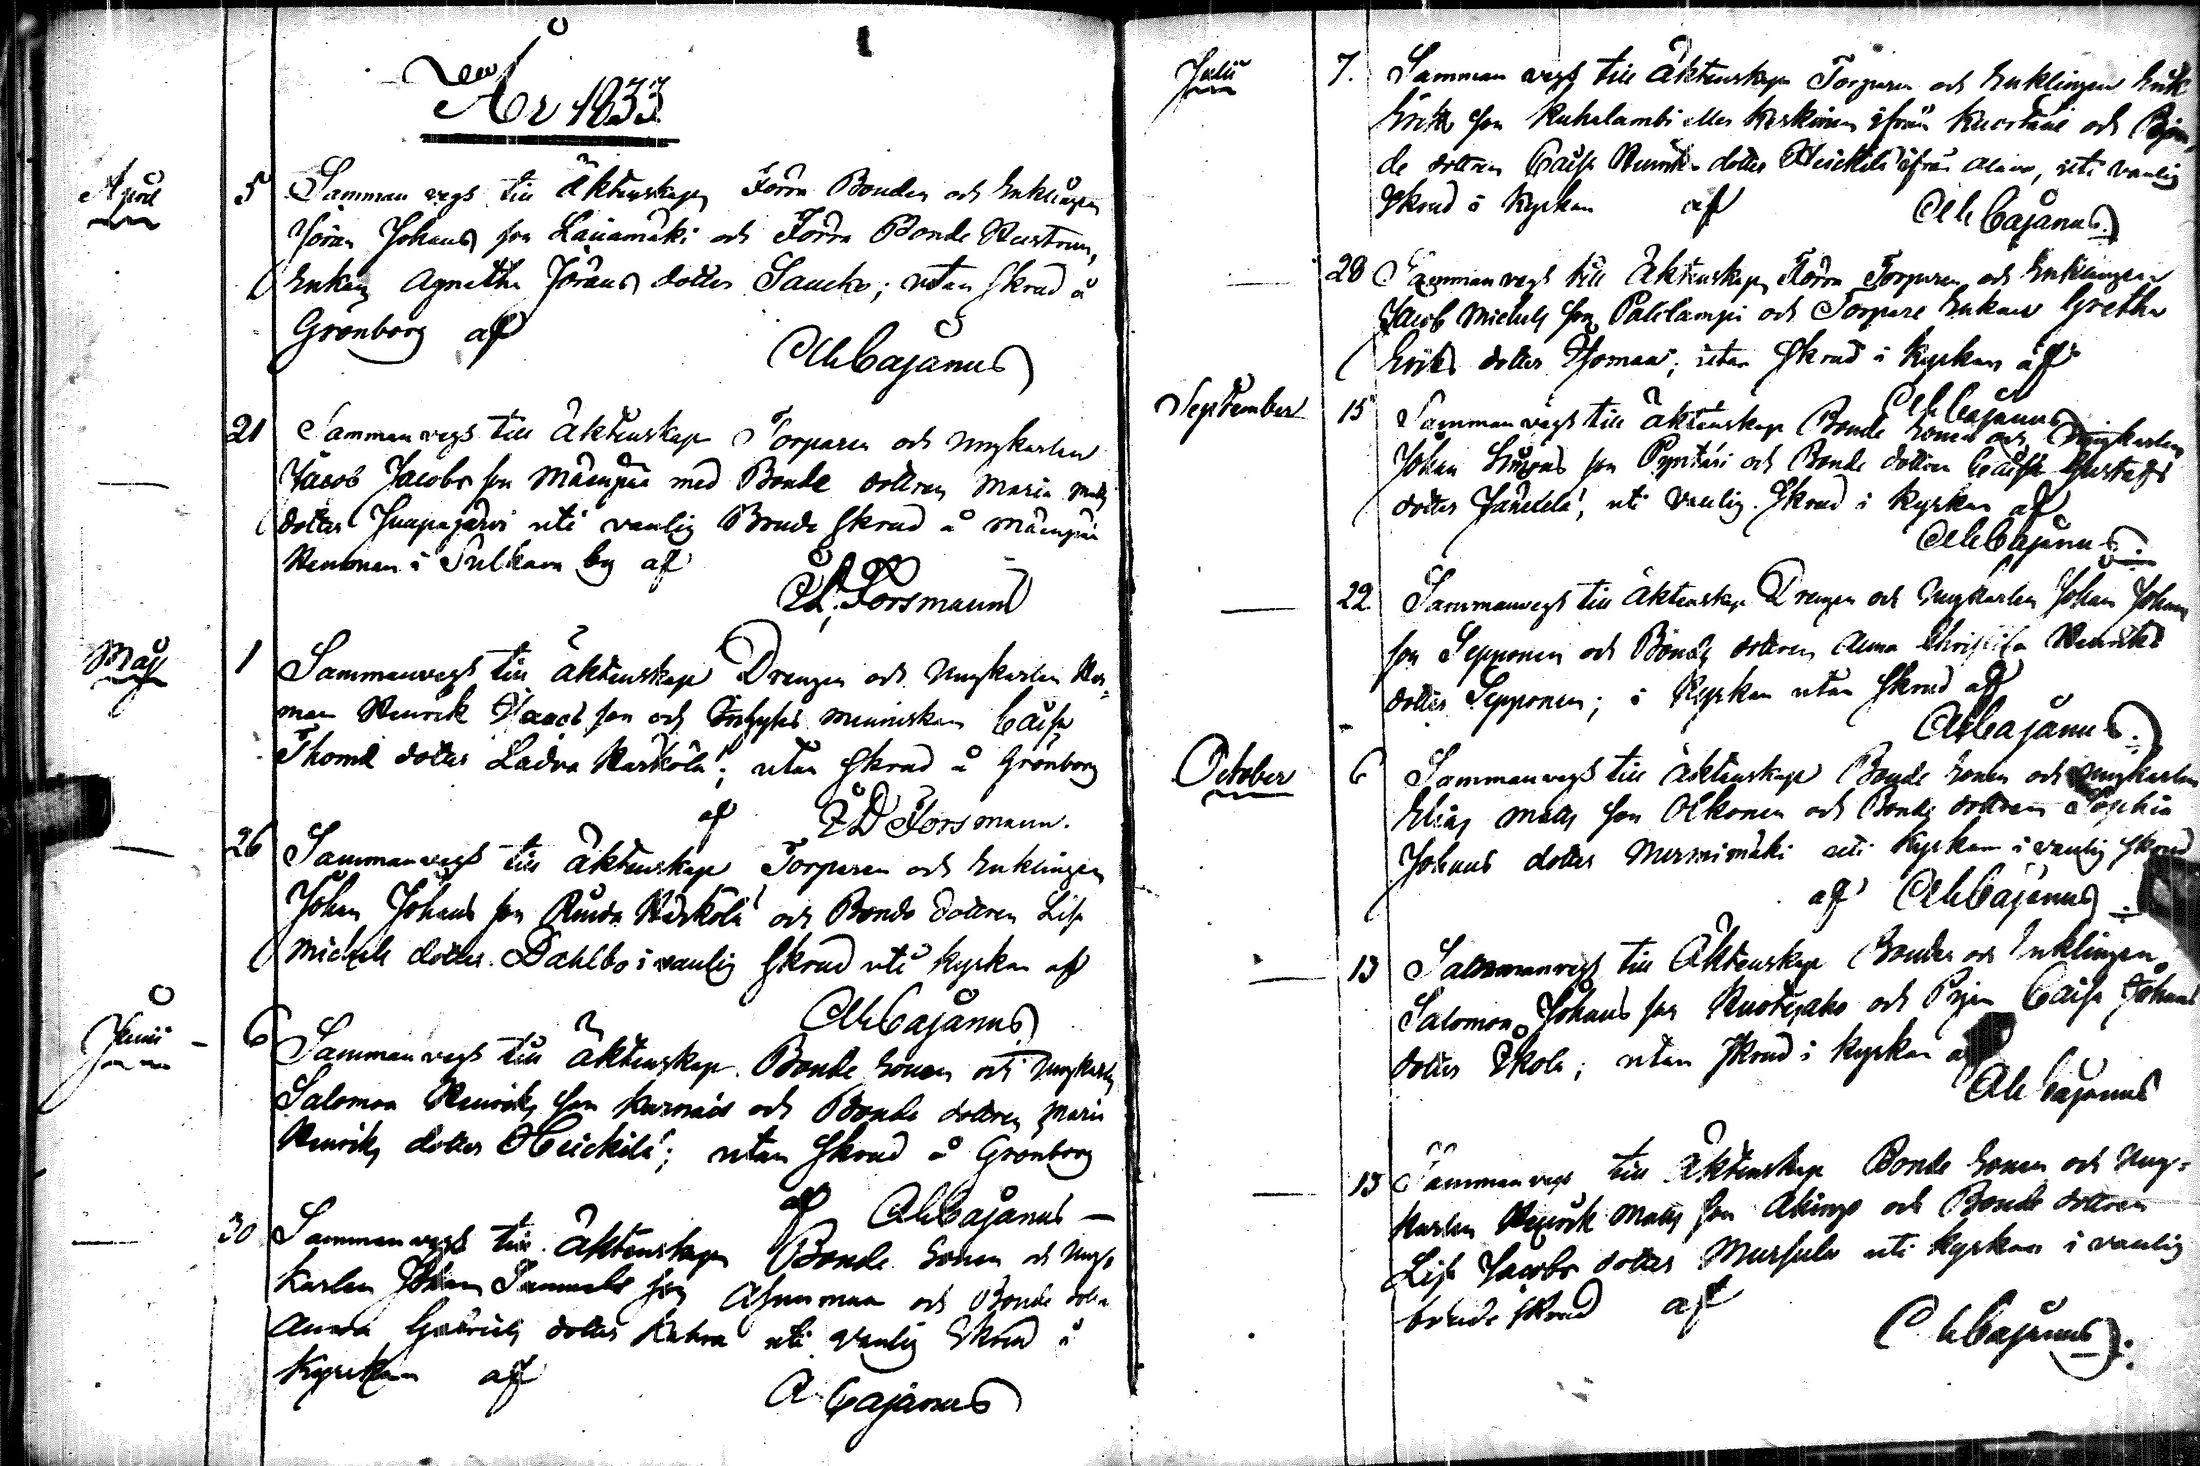 År 1833
April 5 Sammanvegs till äktenskap Förra Bonden och Enklingen
Jöran Johans son Lauamäki och Förra Bonde Hustrun,
Enkan Agnetha Jörans dotter Saucko; utan skrud å
Grönborg af
Cajanus
21 Sammanvegs till äktenskap Torparen och ungkarlen
Jacob Jacobs son Mäenpää med Bonde dottren Maria Matts
dotter Juapajärvi uti vanlig Brude skrud å Mäenpää
Hemman i Sulkava by af
Forsmann
Maj 1 Sammanvegs till äktenskap Drengen och ungkarlen Her-
man Henrik Isaacs son och Inhyses menniskan Caisa
Thomæ dotter Ladva Harkölä; utan skrud å Grönborg
af Forsmann.
26 Sammanvegs till äktenskap Torparen och Enklingen
Johan Johans son Härkölä och Bonde dottren Lisa
Michels dotter Dahlbo i vanlig skrud uti kyrkan af
Cajanus
Junii 6 Sammanvegs till äktenskap Bonde Sonen och Ungkarlen
Salomon Henriks son Kurvais och Bonde dottren Maria
Henriks dotter Heickilä; utan skrud å Grönborg
af Cajanus
30 Sammanvegs till äktenskap Bonde Sonen och Ung-
karlen Johan Samuels son Asunmaa och Bonde dottr
Anna Gabriels dotter Katva uti vanlig skrud i
Kyrckan af
A Cajanus
Julii 7. Sammanvegs till äktenskap Torparen och Enklingen Erik
Eriks son Kuhalambi eller Keskinen ifrån Kuortane och Bon-
de dottren Caisa Henriks dotter Heickilä ifrån Alavo, uti vanlig
skrud i kyrkan af Cajanus
28 Sammanvegs till äktenskap Förra Torparen och Enklingen
Jacob Michels son Palolampi och Torpare Enkan Gretha
Eriks dotter Homan; utan skrud i kyrkan af
Cajanus
September 15 Sammanvegs till äktenskap Bonde Sonen och Ungkarlen
Johan Simons son Pyntäri och Bonde dottren Caisa Gustafs
dotter Jänelelä, uti vanlig skrud i kyrkan af
Cajanus
22. Sammanvegs till äktenskap Drengen och Ungkarlen Johan Johans
son Sepponen och Bonde dottren Anna Christina Henriks
dotter Sepponen; i Kyrkan utan skrud af
Cajanus
October 6 Sammanvegs till äktenskap Bonde Sonen och Ungkarlen
Elias Matts son Olkonen och Bonde dottren Sophia
Johans dotter Mursimäki uti Kyrkan i vanlig skrud
af Cajanus
13 Sammanvegs till Äktenskap Bonden och Enklingen
Salomon Johans son Kuotesaho och Pigan Caisa Johans
dotter Skola; utan skrud i kyrkan af
Cajanus
13 Sammanvegs till äktenskap Bonde Sonen och Ung-
karlen Henrik Matts son Akinpo och Bonde dottren
Lisa Jacobs dotter Mursula uti kyrkan i vanlig
brude skrud af
Cajanus